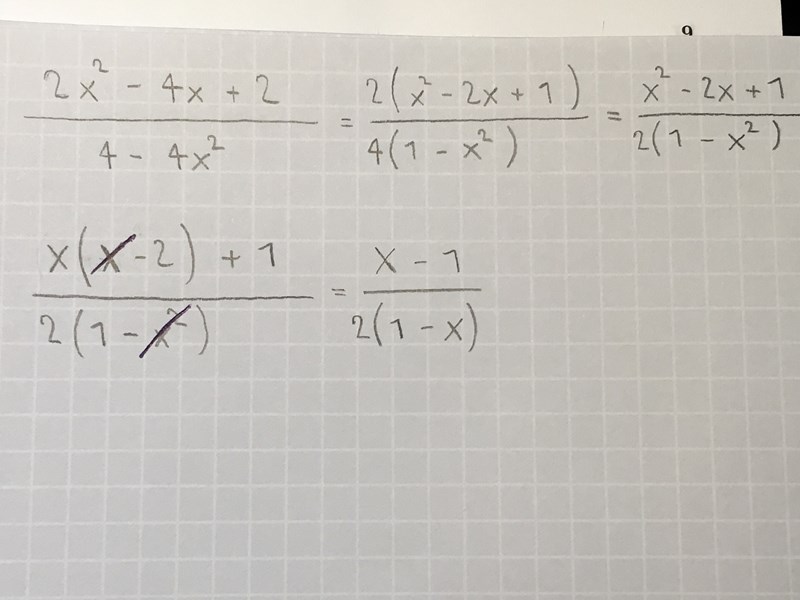 9
2x² - 4x + 2 / 4 - 4x² = 2(x² - 2x + 1) / 4(1 - x²) = x² - 2x + 1 / 2(1 - x²)
x(x - 2) + 1 / 2(1 - x²) = x - 1 / 2(1 - x)